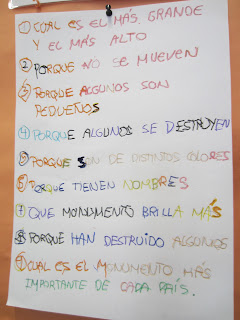 1 CUAL ES EL MÁS GRANDE
Y EL MÁS ALTO
2 PORQUE NO SE MUEVEN
3 PORQUE ALGUNOS SON
PEQUEÑOS
4 PORQUE ALGUNOS SE DESTRUYEN
5 PORQUE SON DE DISTINTOS COLORES
6 PORQUE TIENEN NOMBRES
7 QUE MONUMENTO BRILLA MÁS
8 PORQUE HAN DESTRUIDO ALGUNOS
9 CUAL ES EL MONUMENTO MÁS
IMPORTANTE DE CADA PAÍS.